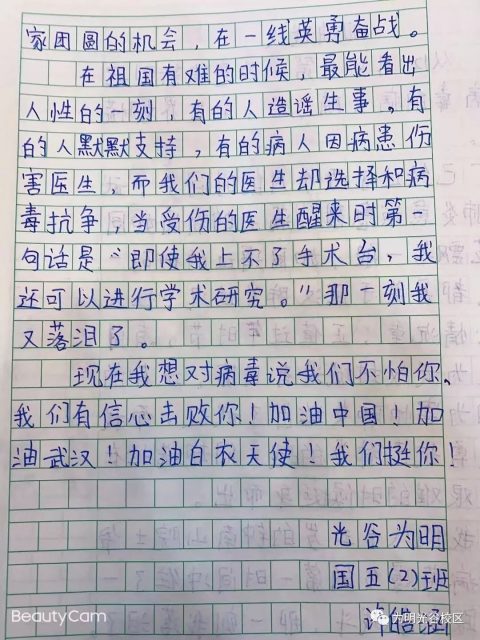 家团圆的机会，在一线英勇奋战。
在祖国有难的时候，最能看出
人性的一刻，有的人造谣生事，有
的人默默支持，有的病人因病患伤
害医生，而我们的医生却选择和病
毒抗争，当受伤的医生醒来时第一
句话是“即使我上不了手术台，我
还可以进行学术研究。”那一刻我
又落泪了。
现在我想对病毒说我们不怕你、
我们有信心击败你！加油中国！加
油武汉！加油白衣天使！我们挺你！
光谷为明
国五(2)班
许皓
BeautyCam
为明光谷校区